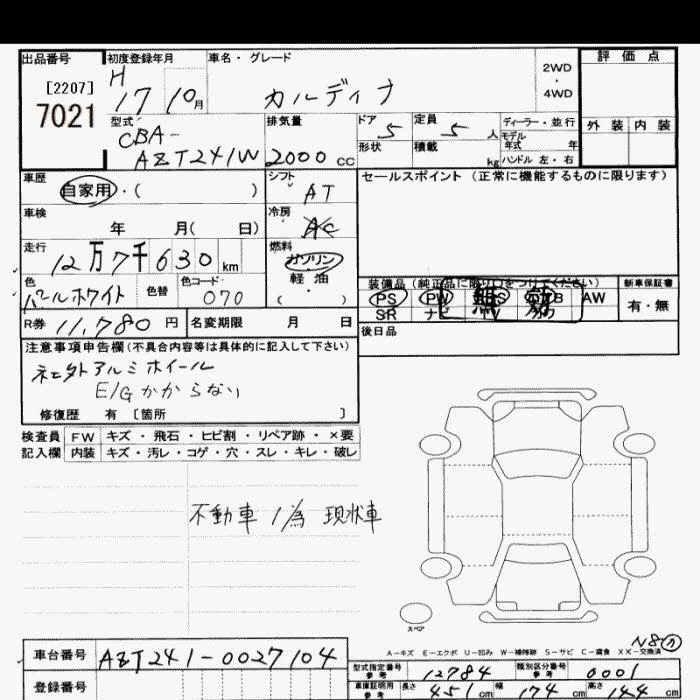 出品番号 初度登録年月 車名・グレード 評価点
[2207] H 2WD
7021 17 10月 カルディナ ・
4WD
型式 排気量 ドア 定員 ディーラー・並行 外装 内装
CBA- 5 5 人 モデル年式 年
AZT241W 2000 CC 形状 積載 kg ハンドル 左・右
車歴 シフト セールスポイント（正常に機能するものに限ります）
自家用・（ ） AT
車検 冷房
年 月（ 日） AC
走行 燃料
12万7千630km ガソリン
軽・油
色 色替 色コード （ ） 装備品（純正品に限り○をつけてください） 新車保証書
パールホワイト 070 PS PW AW 有・無
SR ナビ TV
R券 11,780円 名変期限 月 日 後日品
注意事項申告欄（不具合内容等は具体的に記入して下さい）
社外アルミホイール
E/Gかからない
修復歴 有 〔箇所 〕
検査員 FW キズ・飛石・ヒビ割・リペア跡・×要
記入欄 内装 キズ・汚レ・コゲ・穴・スレ・キレ・破レ
不動車 1/為 現状車
スペア
A－キズ E－エクボ U－凹み W－補修跡 S－サビ C－腐食 XX－交換済
車台番号 AZT241-0027104
型式指定番号参考 12784 類別区分番号参考 0001
登録番号 車庫証明用参考 長さ 451cm 幅 174cm 高さ cm